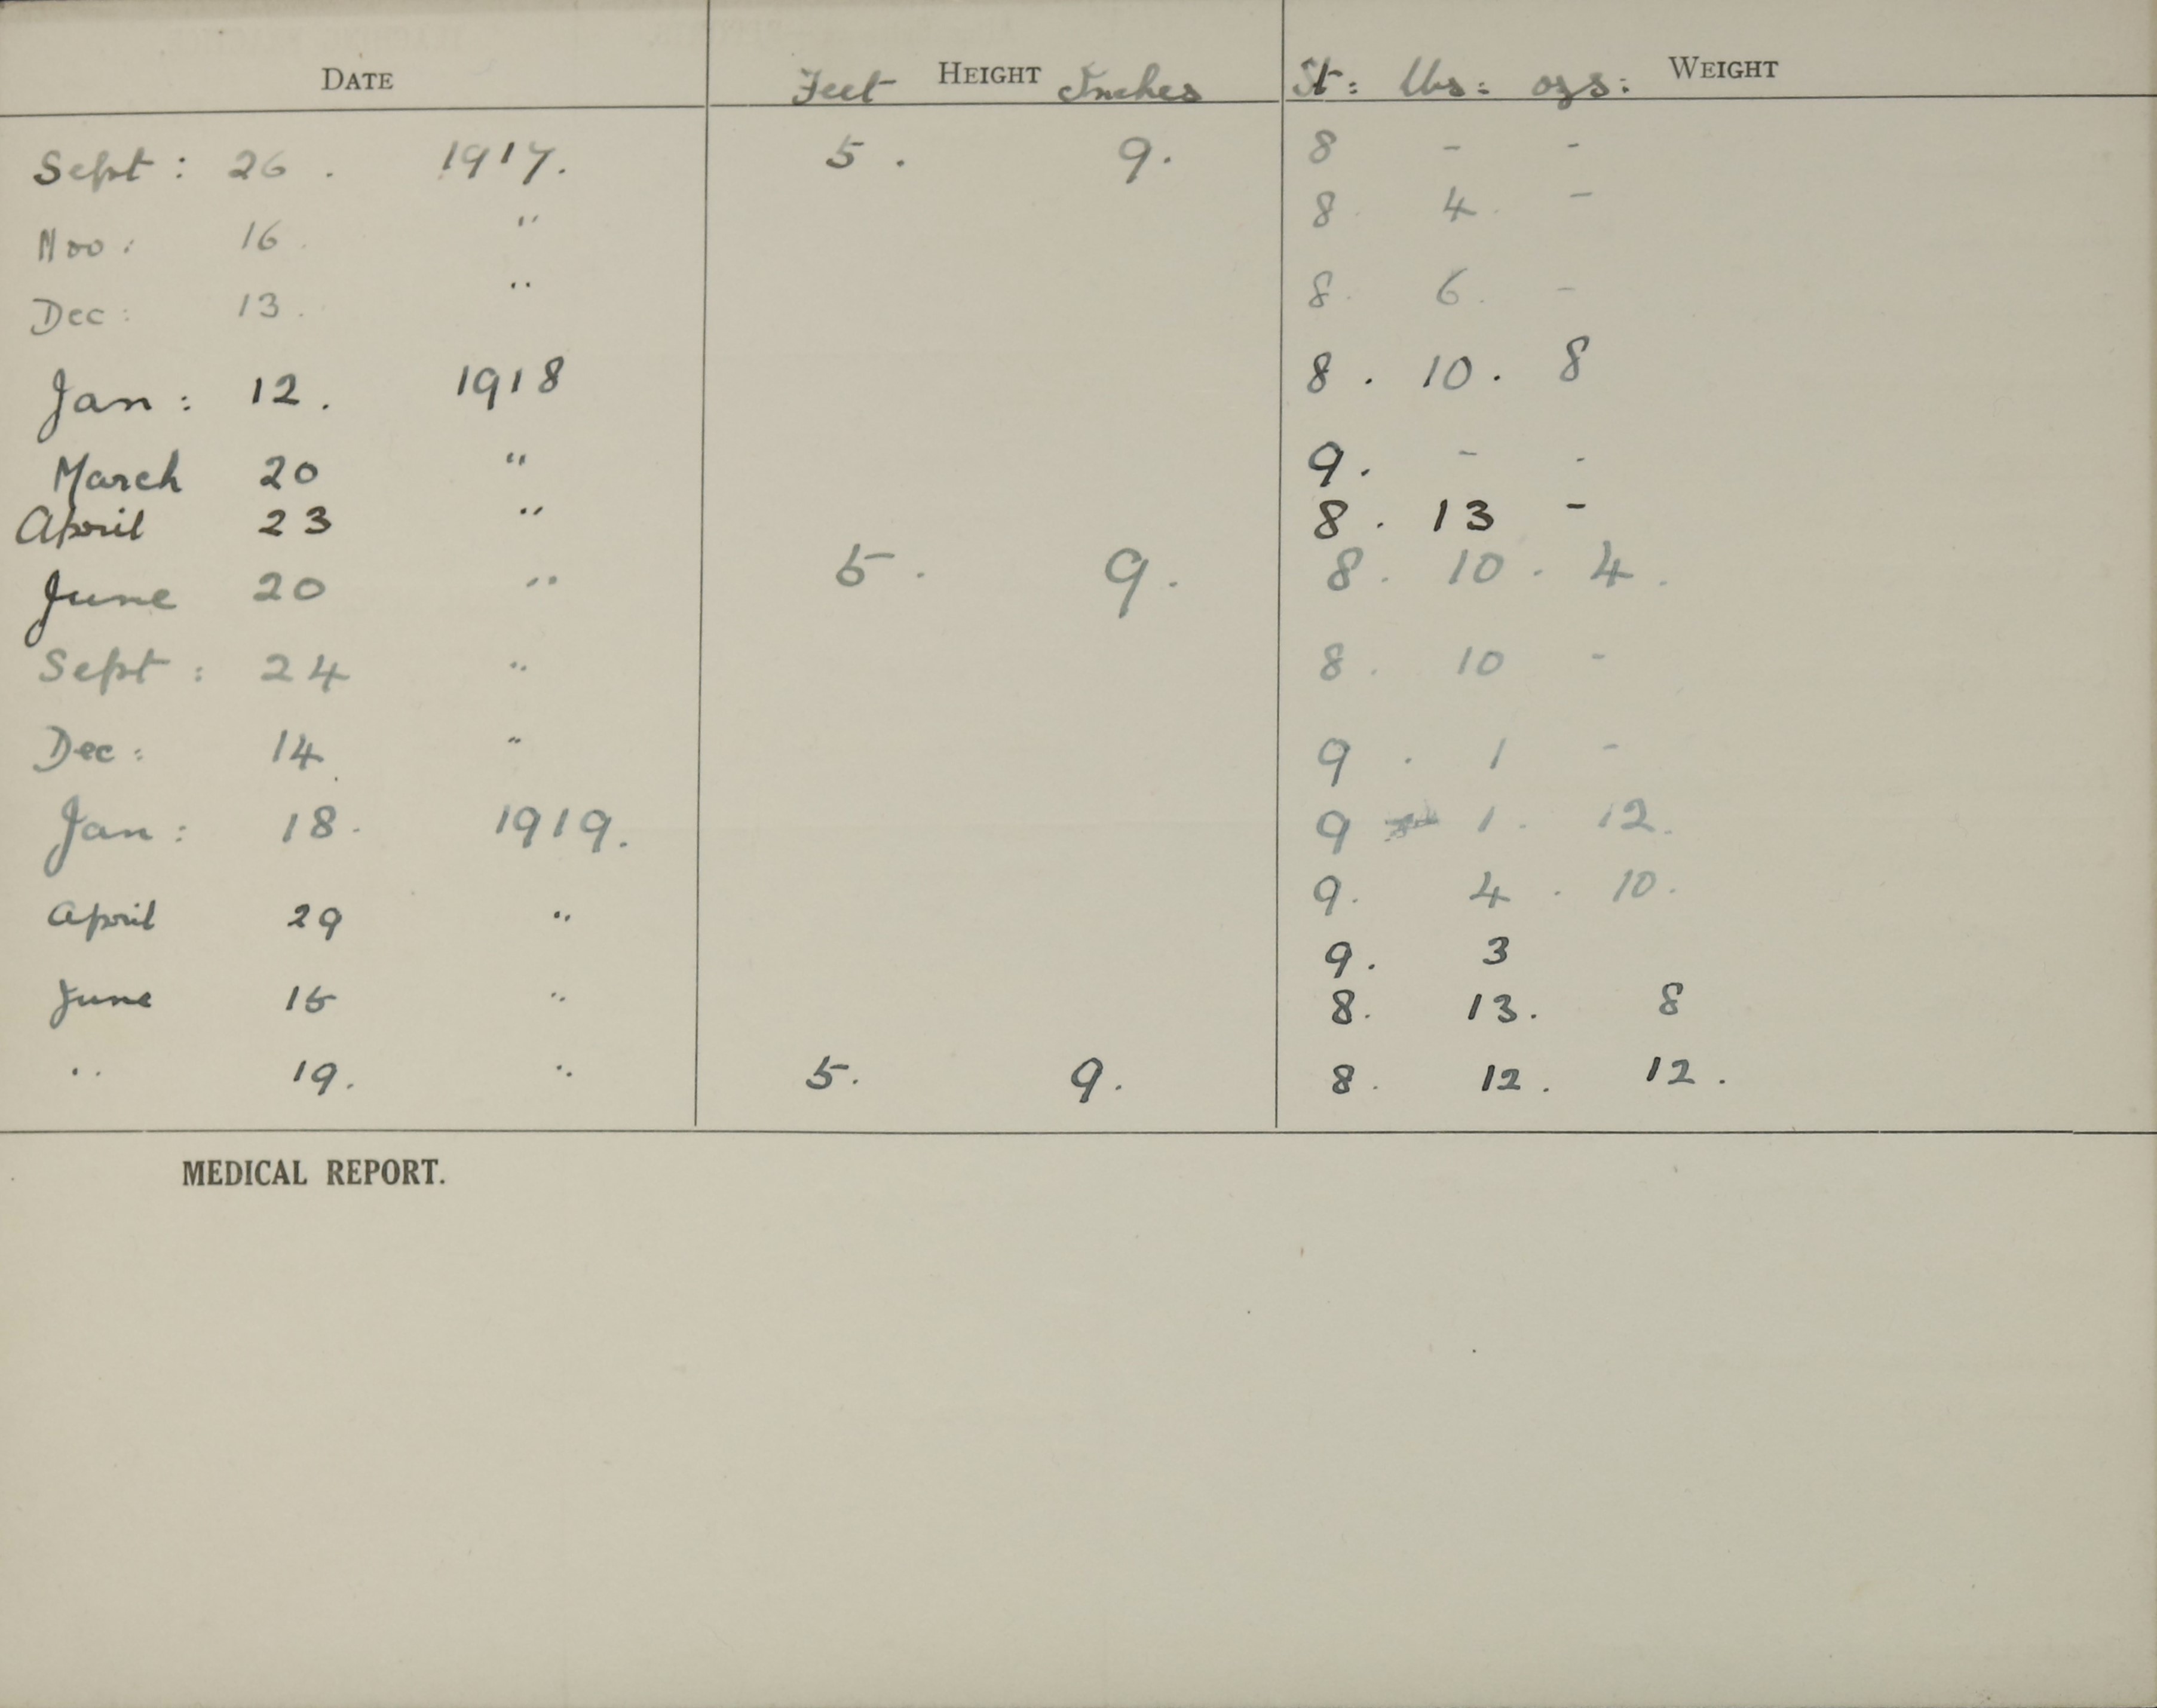 DATE Feet HEIGHT Inches St: lbs: ozs: WEIGHT
Sept: 26. 1917. 5. 9. 8 - -
Nov: 16. " 8. 4. -
Dec: 13. " 8. 6. -
Jan: 12. 1918 8. 10. 8
March 20 " 9. - -
April 23 " 8. 13 -
June 20 " 5. 9. 8. 10. 4.
Sept: 24 " 8. 10 -
Dec: 14. " 9. 1 -
Jan: 18. 1919. 9 1. 12.
9. 4. 10.
April 29 " 9. 3
June 15 " 8. 13. 8
" 19. " 5. 9. 8. 12. 12.
MEDICAL REPORT.